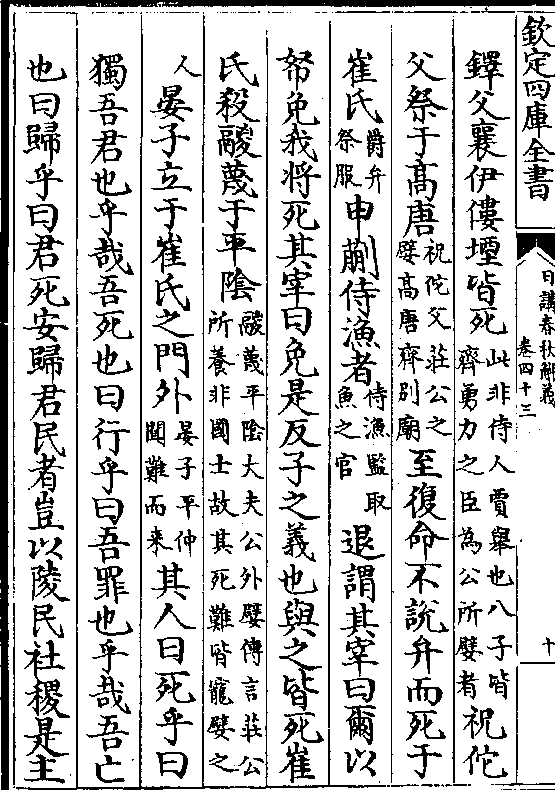 欽定四庫全書
日講春秋解義
卷四十三
十
鐸父襄伊僂堙皆死此非侍人賈舉也八子皆齊勇力之臣為公所嬖者祝佗
父祭于高唐祝佗父莊公之嬖高唐齊别廟至復命不說弁而死于
崔氏爵弁祭服申蒯侍漁者侍漁監取魚之官退謂其宰曰爾以
帑免我將死其宰曰免是反子之義也與之皆死崔
氏殺鬷蔑于平陰鬷蔑平陰大夫公外嬖傳言莊公所養非國士故其死難皆寵嬖之
人晏子立于崔氏之門外晏子平仲聞難而来其人曰死乎曰
獨吾君也乎哉吾死也曰行乎曰吾罪也乎哉吾亡
也曰歸乎曰君死安歸君民者豈以陵民社稷是主